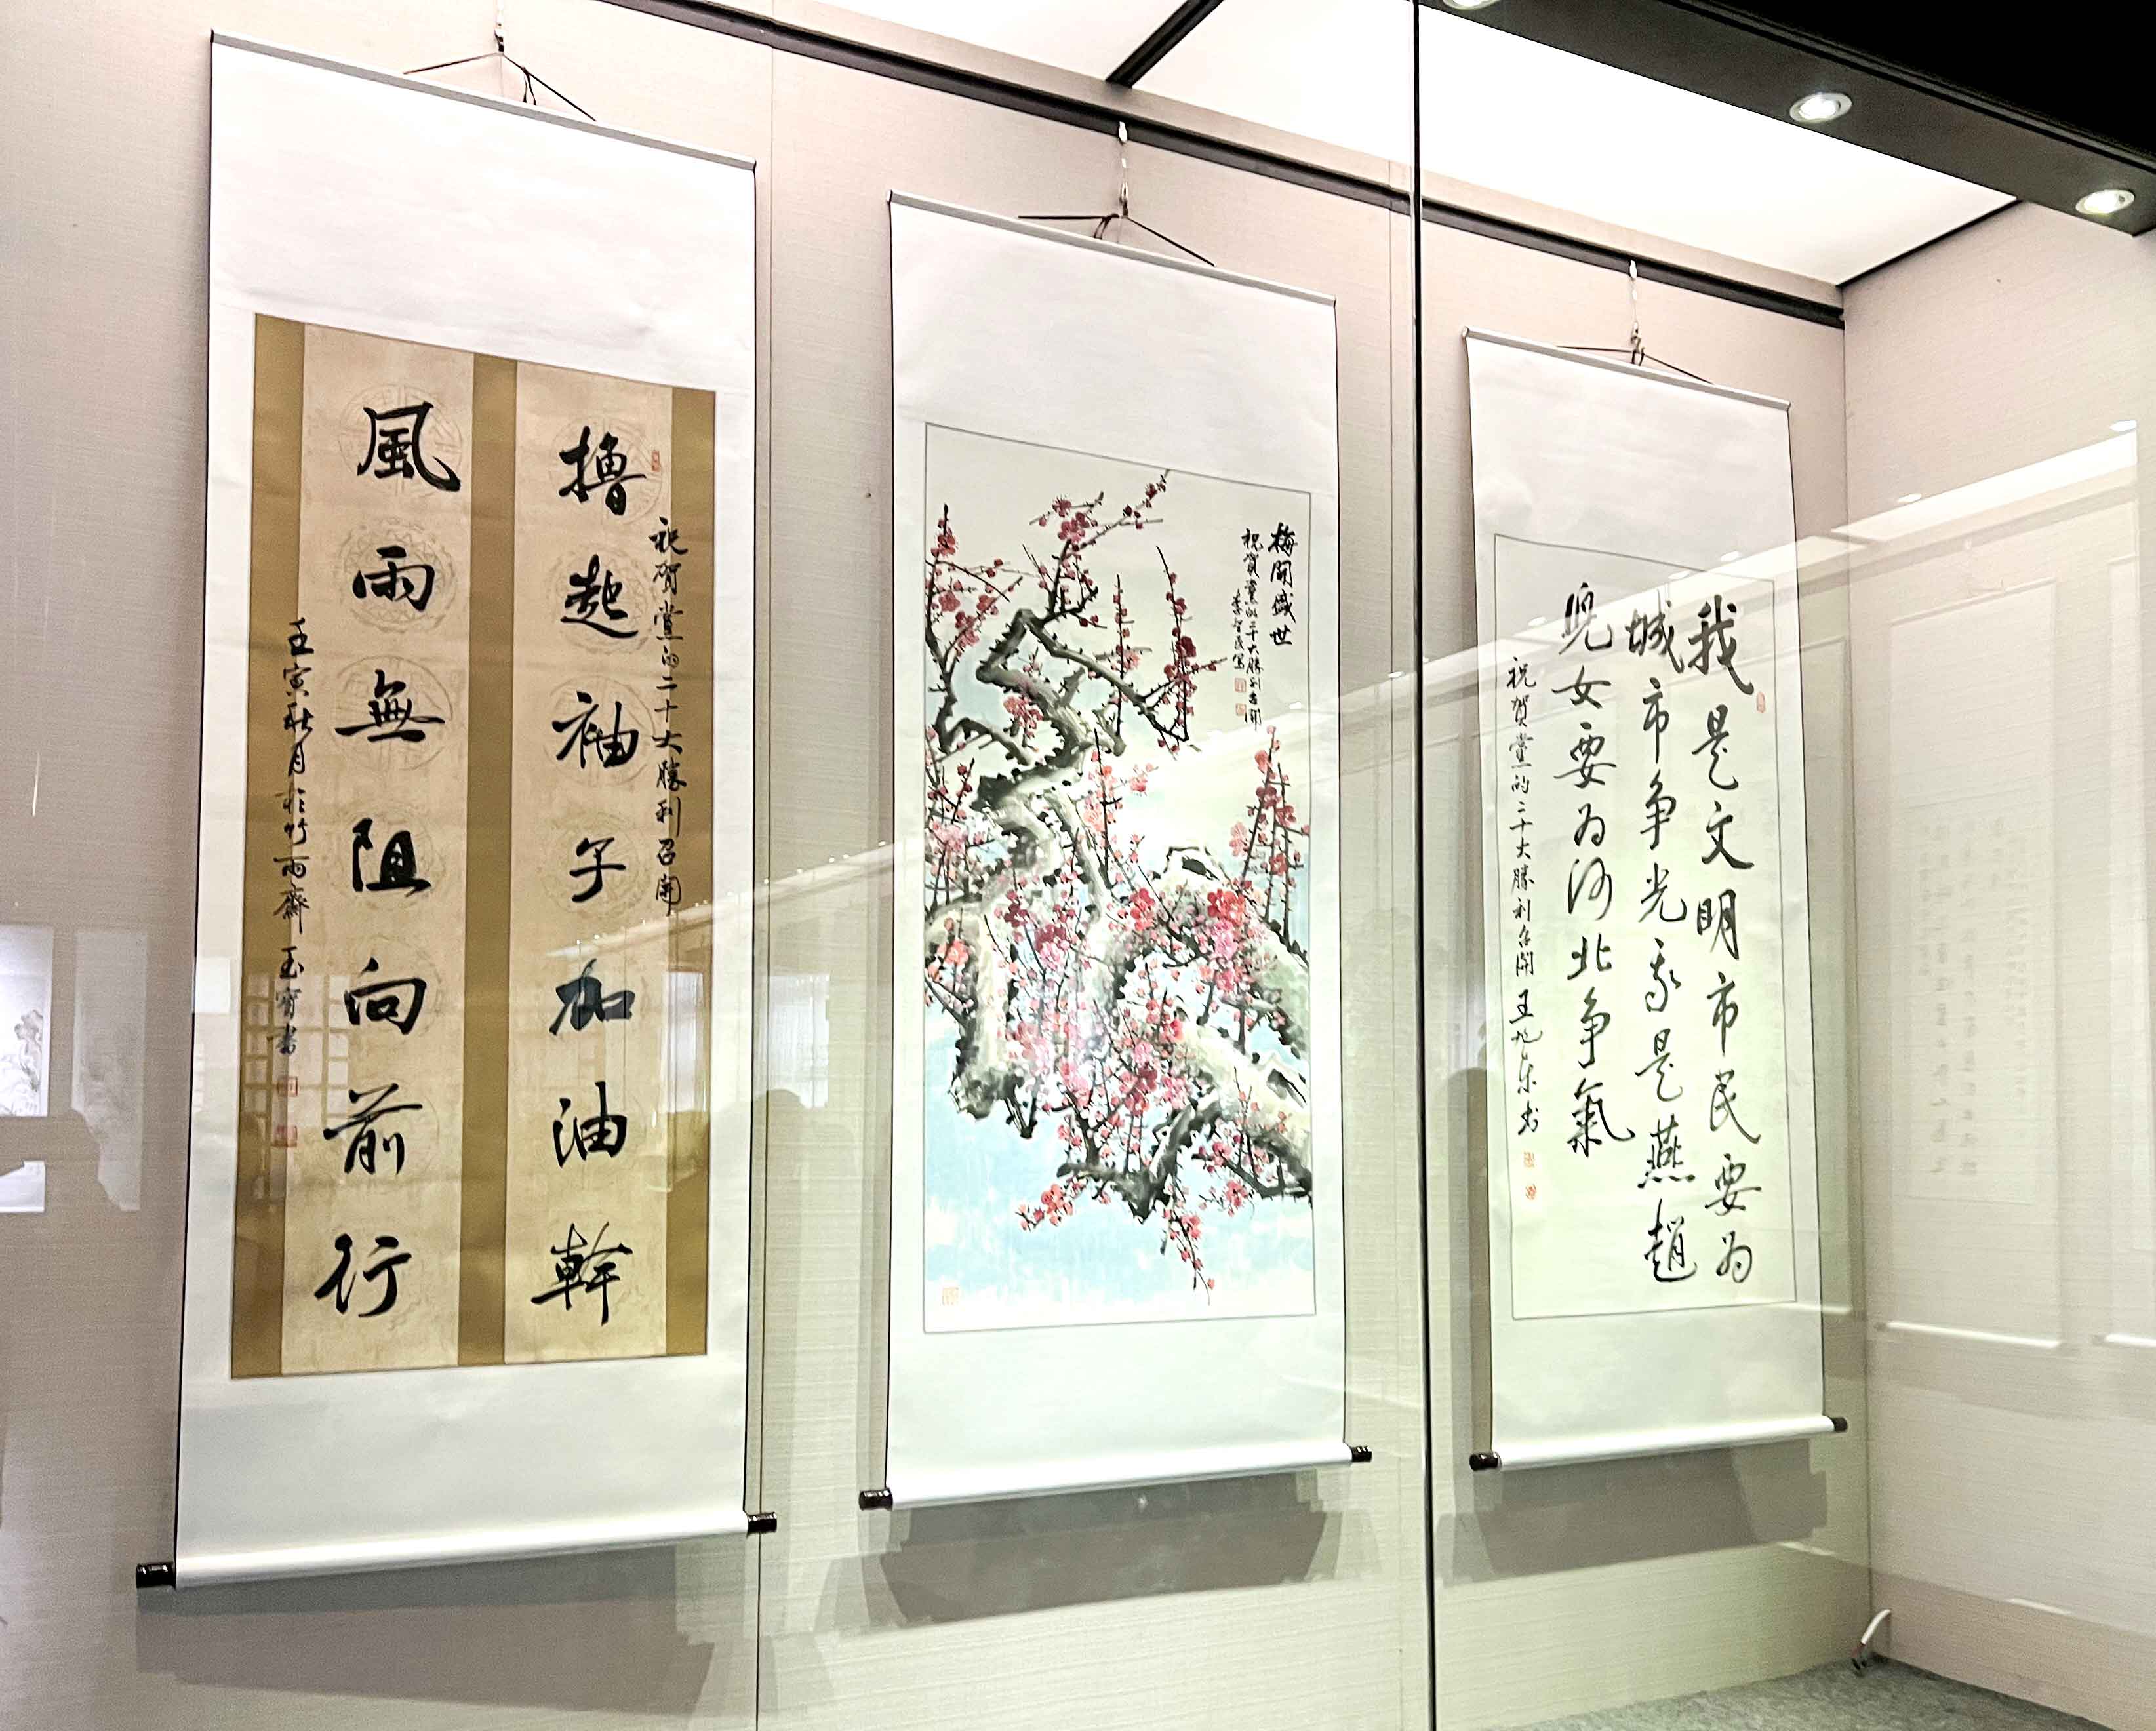 祝贺黨的二十大勝利召開
擼起袖子加油幹
風雨無阻向前行
壬寅秋月於竹雨齋 玉寳書
梅開盛世
祝賀黨的二十大勝利召開
我是文明市民要为
城市争光我是燕趙
兒女要为河北争氣
祝贺黨的二十大勝利召開